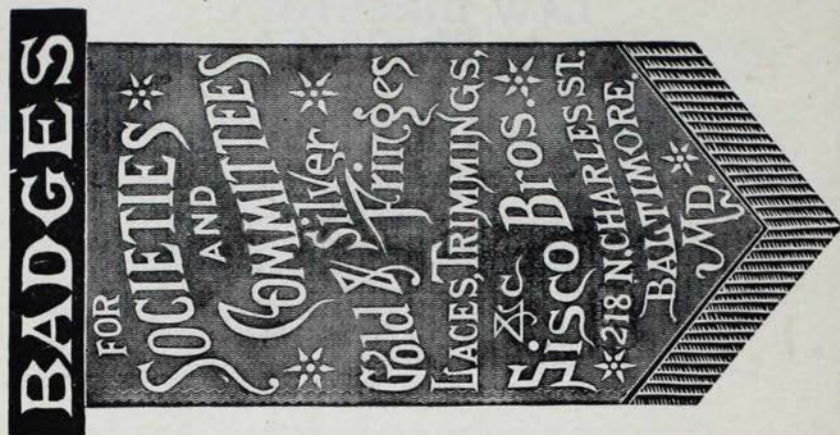 BADGES
FOR
SOCIETIES
AND
COMMITTEES
Gold & Silver
Fringes
LACES, TRIMMINGS,
&c
Sisco Bros.
218 N. CHARLES ST.
BALTIMORE.
MD.